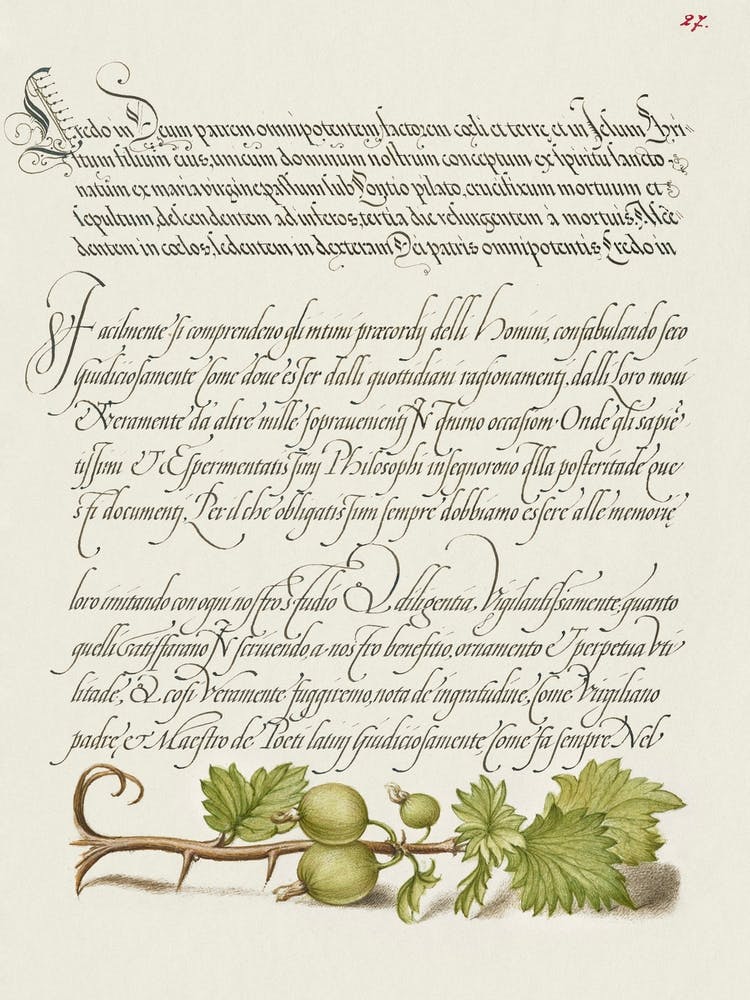 27.
Credo in Deum patrem omnipotentem, factorem cœli et terre, et in Jesum Chri-
stum filium eius, unicum dominum nostrum conceptum ex spiritu sancto
natum ex maria virgine passum sub Pontio pilato, crucifixum mortuum et
sepultum, descendentem ad inferos, tertia die resurgentem à mortuis, Ascē
dentem in cœlos, sedentem in dexteram Dei patris omnipotentis, Credo in
Facilmente si comprendeno gli intimi præcordij delli Homini, confabulando seco
Giudiciosamente Come doue esser dalli quottidiani ragionamenti, dalli Loro moui
Et Veramente da altre mille sopravenienti In Animo occasiom. Onde gli sapiē
tissimi Et Esperimentatissimi Philosophi insegnorono Alla posteritade Que
sti documenti, Per il che obligatissimi sempre dobbiamo essere alle memorie
loro imitando con ogni nostro studio Et diligentia, Vigilantissamente, quanto
quelli Satisffarano In scriuendo, a nostro benefitio, ornamento Et perpetua Vti
litade, Et cosi Veramente fuggiremo, nota de ingratudine, Come Virgiliano
padre et Maestro de Poeti latini Giudiciosamente, Come fa sempre Nel